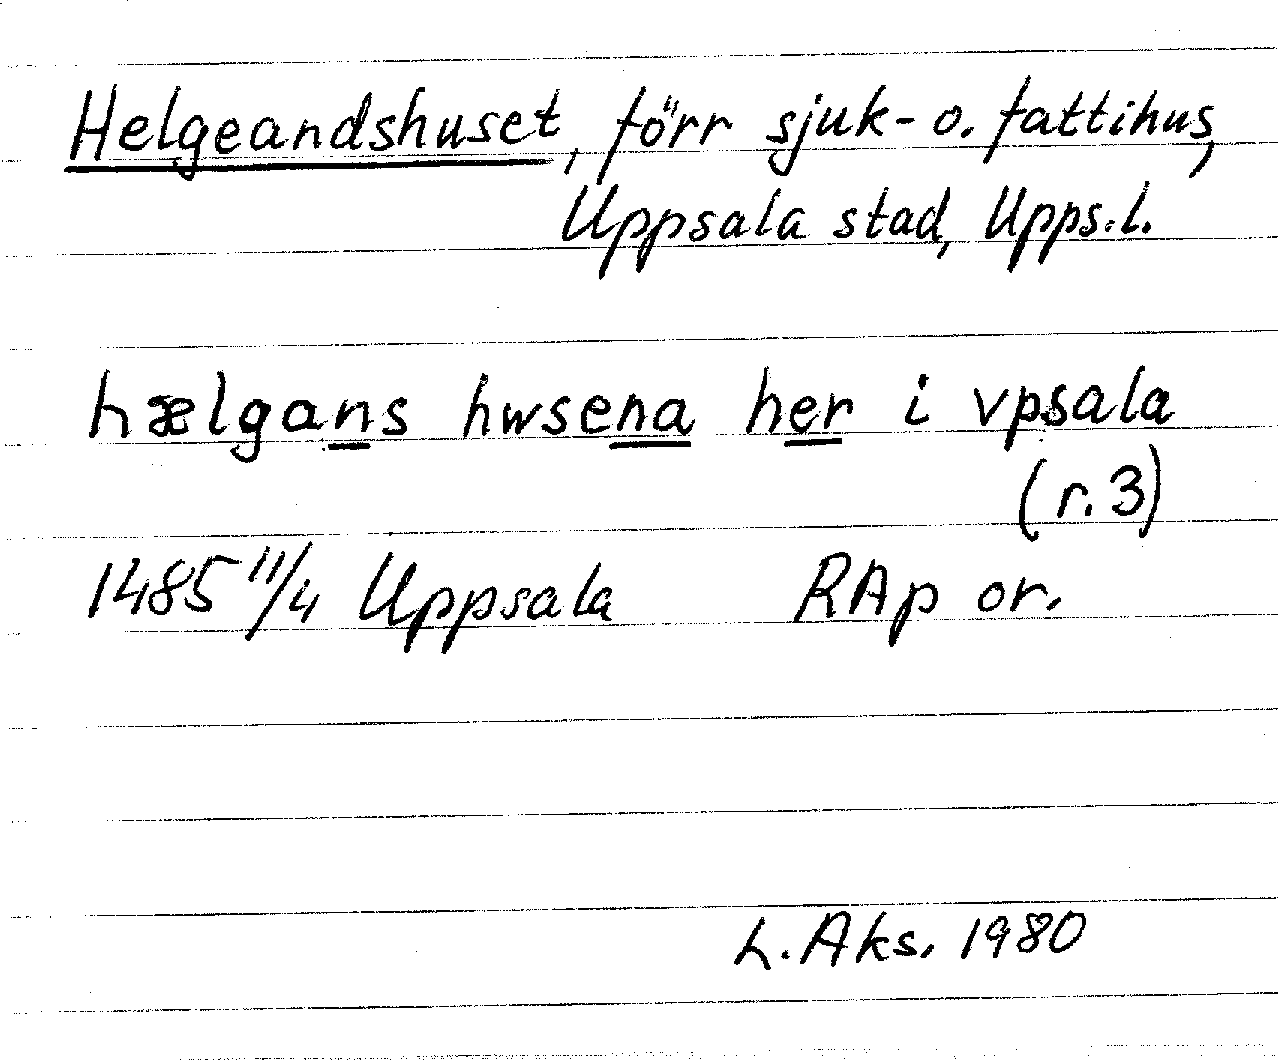 Helgeandshuset, förr sjuk- o. fattihus,
Uppsala stad, Upps.l.
hælgans hwsena her i vpsala
(r. 3)
1485 11/4 Uppsala RAp or.
L. Aks. 1980